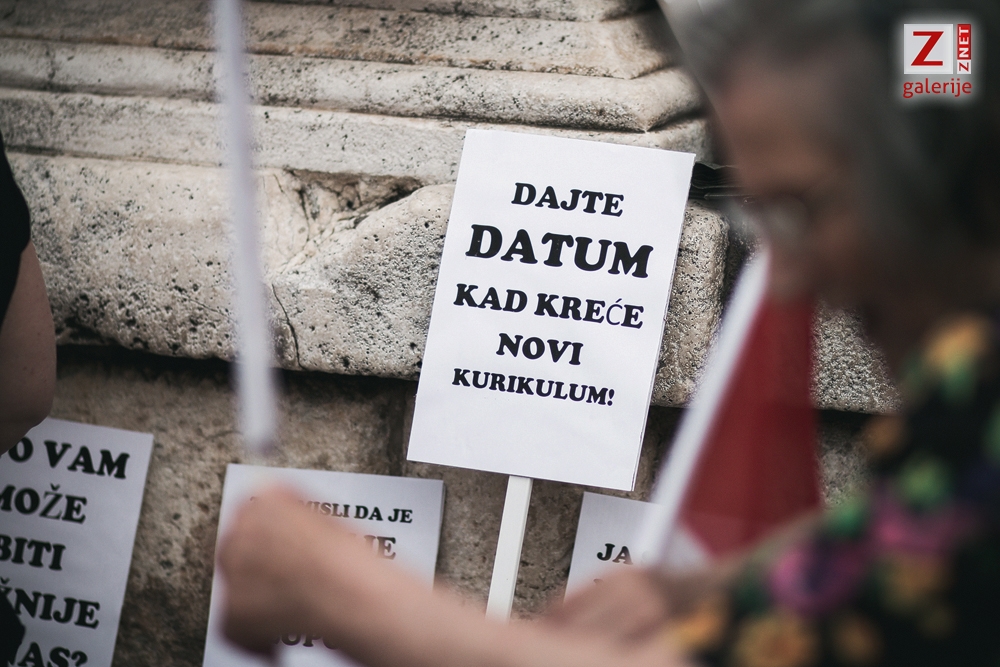 Z ZNET
galerije
DAJTE
DATUM
KAD KREĆE
NOVI
KURIKULUM!
O VAM
MOŽE
BITI
ŽNIJE
AS?
ISLI DA JE
JA